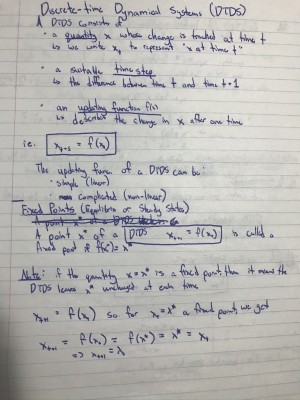 Discrete-time Dynamical Systems (DTDS)
A DTDS consists of
• a quantity x whose change is tracked at time t
↳ we write xₜ to represent "x at time t"
• a suitable time step
↳ the difference between time t and time t+1
• an updating function f(x)
↳ describes the change in x after one time
i.e. xₜ₊₁ = f(xₜ)
The updating func. of a DTDS can be:
• simple (linear)
complicated (non-linear)
Fixed Points (Equilibria or Steady States)
A point x* of a DTDS xₜ₊₁ = f(xₜ) is called a
fixed point if f(x*) = x*
Note: if the quantity x = x* is a fixed point, then it means the
DTDS leaves x* unchanged at each time
xₜ₊₁ = f(xₜ) so for xₜ = x* a fixed point, we get
xₜ₊₁ = f(xₜ) = f(x*) = x* = xₜ
=> xₜ₊₁ = xₜ